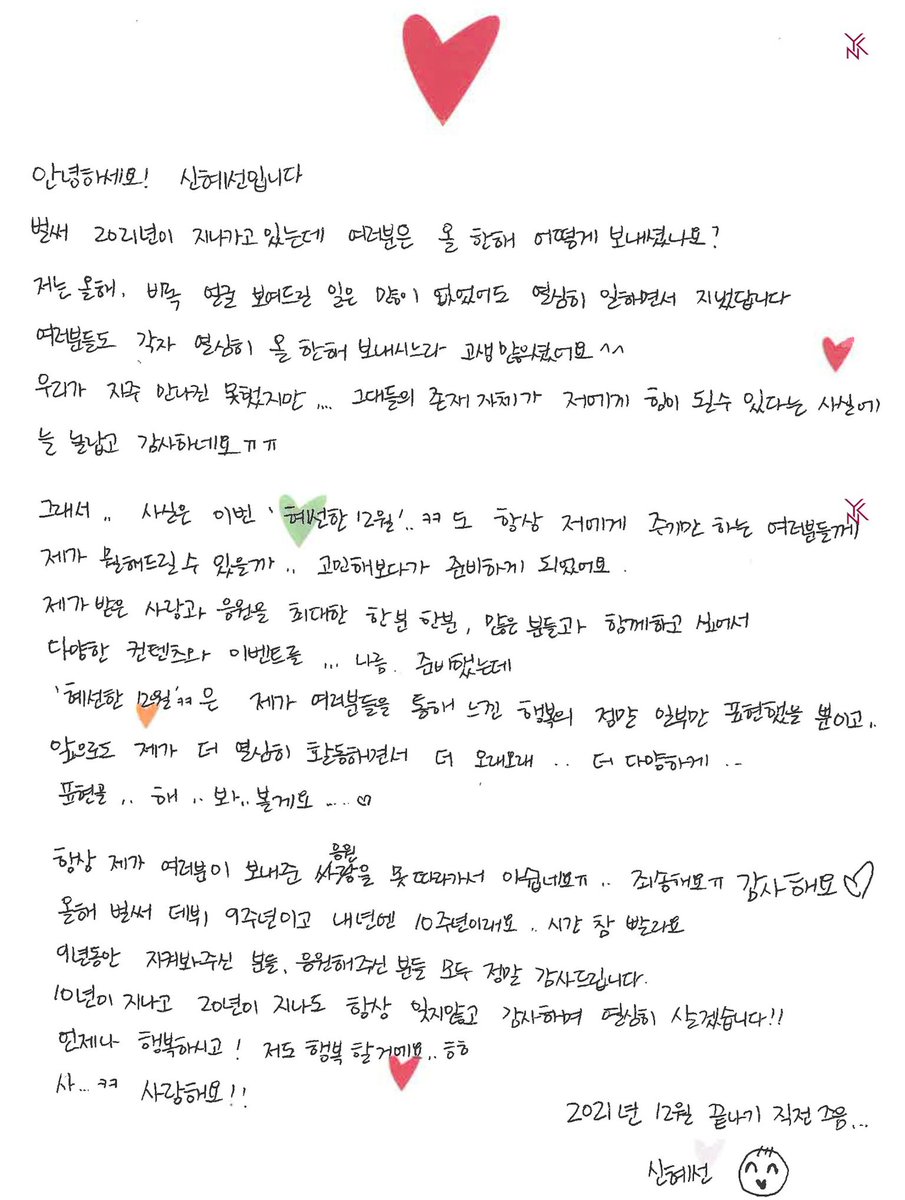 YNK
안녕하세요! 신혜선입니다
벌써 2021년이 지나가고 있는데 여러분은 올 한해 어떻게 보내셨나요?
저는 올해, 비록 얼굴 보여드릴 일은 많이 없었어도 열심히 일하면서 지냈답니다
여러분들도 각자 열심히 올 한해 보내시느라 고생 많으셨어요^^
우리가 자주 만나진 못했지만 ... 그대들의 존재 자체가 저에게 힘이 될수 있다는 사실에
늘 놀랍고 감사하네요ㅠㅠ
그래서 .. 사실은 이번 '혜선한 12월'..ㅋㅋ도 항상 저에게 주기만 하는 여러분들께
YNK
제가 뭘해드릴 수 있을까 .. 고민해보다가 준비하게 되었어요.
제가 받은 사랑과 응원을 최대한 한분 한분, 많은 분들과 함께하고 싶어서
다양한 컨텐츠와 이벤트를 ... 나름. 준비했는데
'혜선한 12월'ㅋㅋ은 제가 여러분들을 통해 느낀 행복의 정말 일부만 표현했을 뿐이고..
앞으로도 제가 더 열심히 활동하면서 더 오래오래 .. 더 다양하게 ..
표현을 .. 해 .. 봐.. 볼게요 .... ♡
항상 제가 여러분이 보내준 응원을 못 따라가서 아쉽네요ㅠ .. 죄송해요ㅠ 감사해요♡
올해 벌써 데뷔 9주년이고 내년엔 10주년이래요 .. 시간 참 빨라요
9년동안 지켜봐주신 분들, 응원해주신 분들 모두 정말 감사드립니다.
10년이 지나고 20년이 지나도 항상 잊지않고 감사하며 열심히 살겠습니다!!
언제나 행복하시고! 저도 행복 할거에요..ㅎㅎ
사...ㅋㅋ 사랑해요!!
2021년 12월 끝나기 직전 즈음...
신혜선